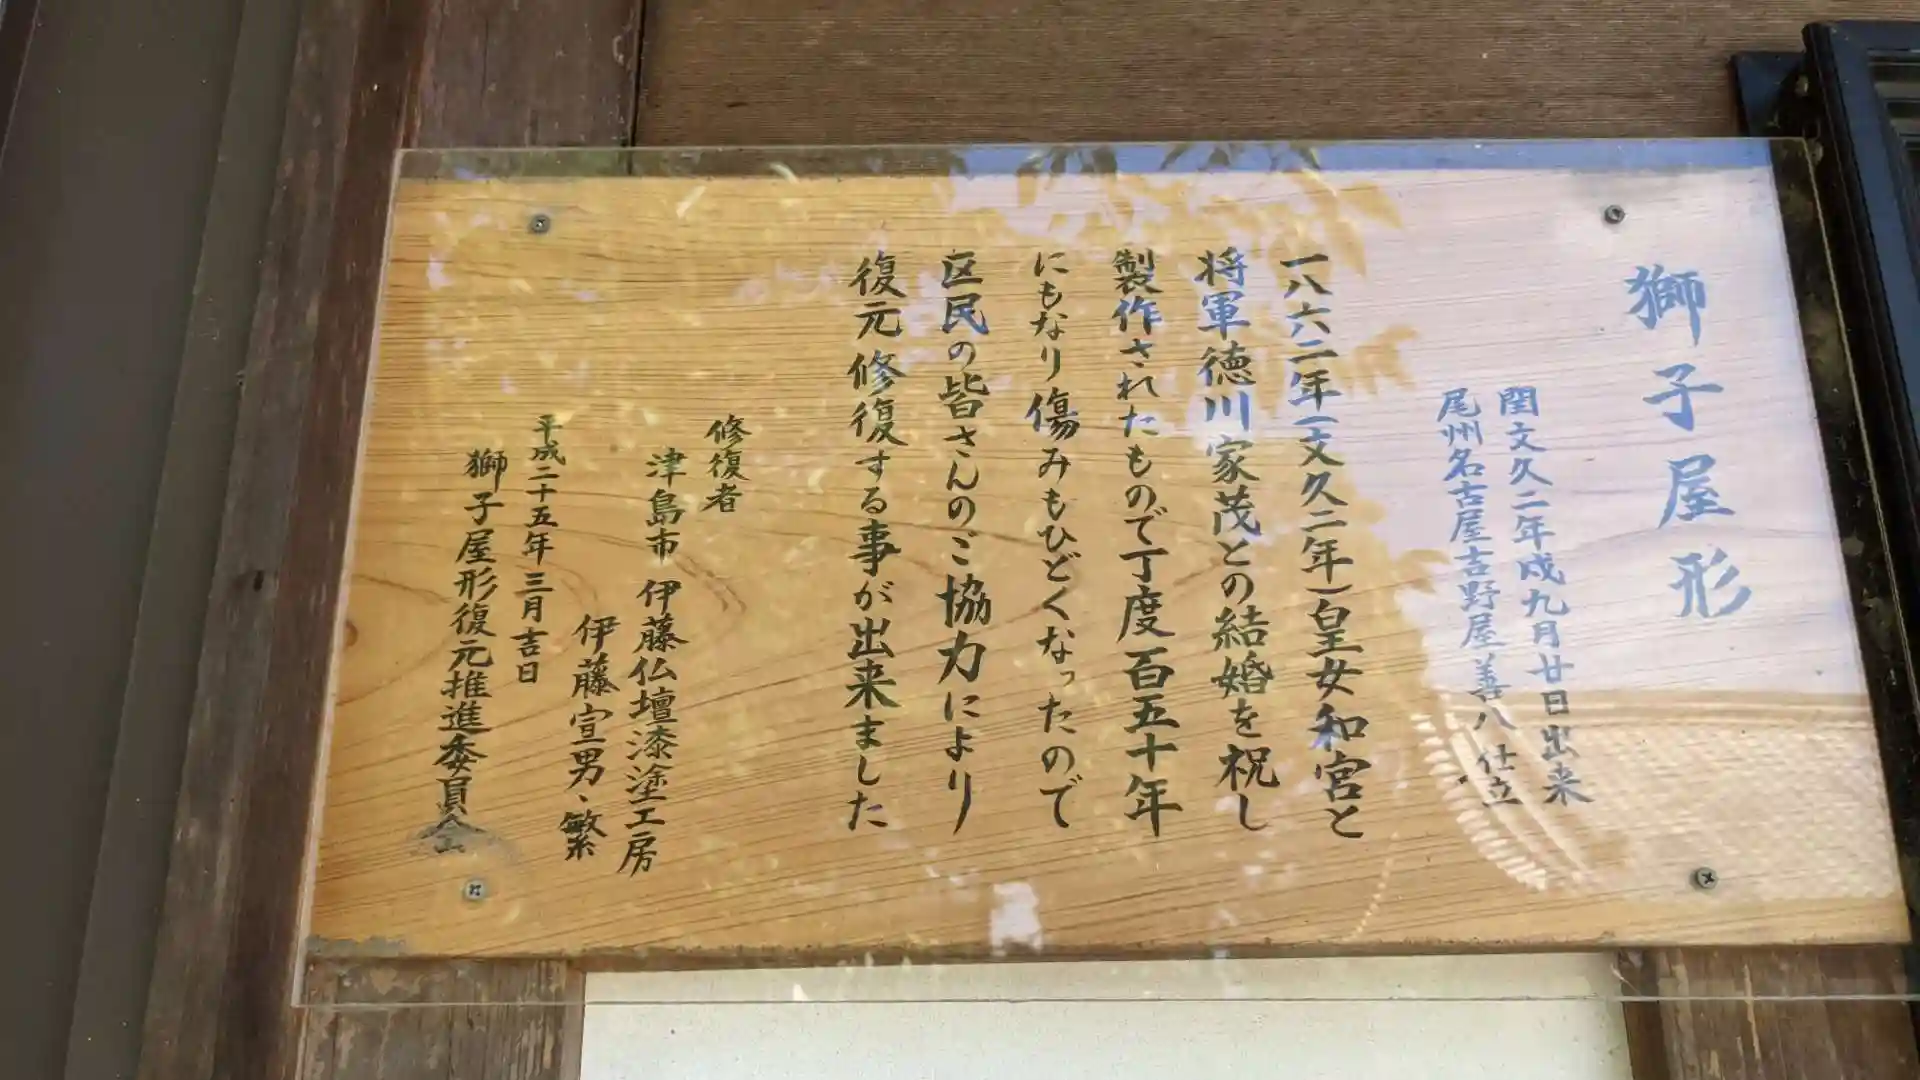 獅子屋形
閏文久二年戌九月廿日出来
尾州名古屋吉野屋善八 仕立
一八六二年(文久二年)皇女和宮と
将軍徳川家茂との結婚を祝し
製作されたもので丁度百五十年
にもなり傷みもひどくなったので
区民の皆さんのご協力により
復元修復する事が出来ました
修復者
津島市 伊藤仏壇漆塗工房
伊藤宣男、繁
平成二十五年三月吉日
獅子屋形復元推進委員会